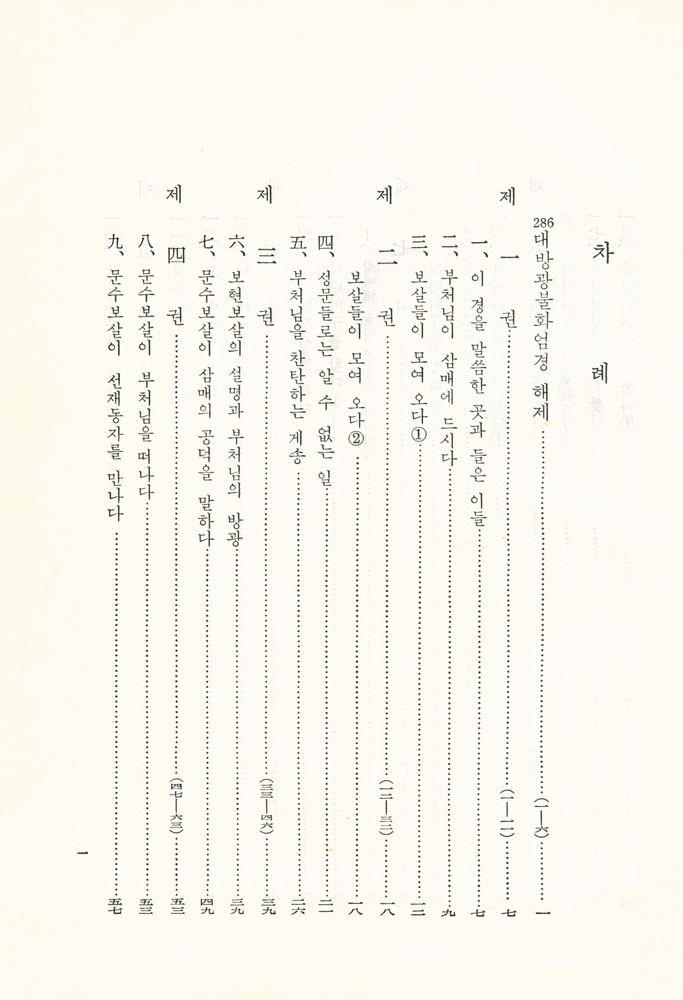 차례
286 대방광불화엄경 해제 (一—六) 一
제一권 (一—一一) 七
一、이 경을 말씀한 곳과 들은 이들 七
二、부처님이 삼매에 드시다 九
三、보살들이 모여 오다① 一二
제二권 (一二—三二) 一八
보살들이 모여 오다② 一八
四、성문들로는 알 수 없는 일 二一
五、부처님을 찬탄하는 게송 二六
제三권 (三三—四六) 三九
六、보현보살의 설명과 부처님의 방광 三九
七、문수보살이 삼매의 공덕을 말하다 四九
제四권 (四七—六三) 五三
八、문수보살이 부처님을 떠나다 五三
九、문수보살이 선재동자를 만나다 五七
一